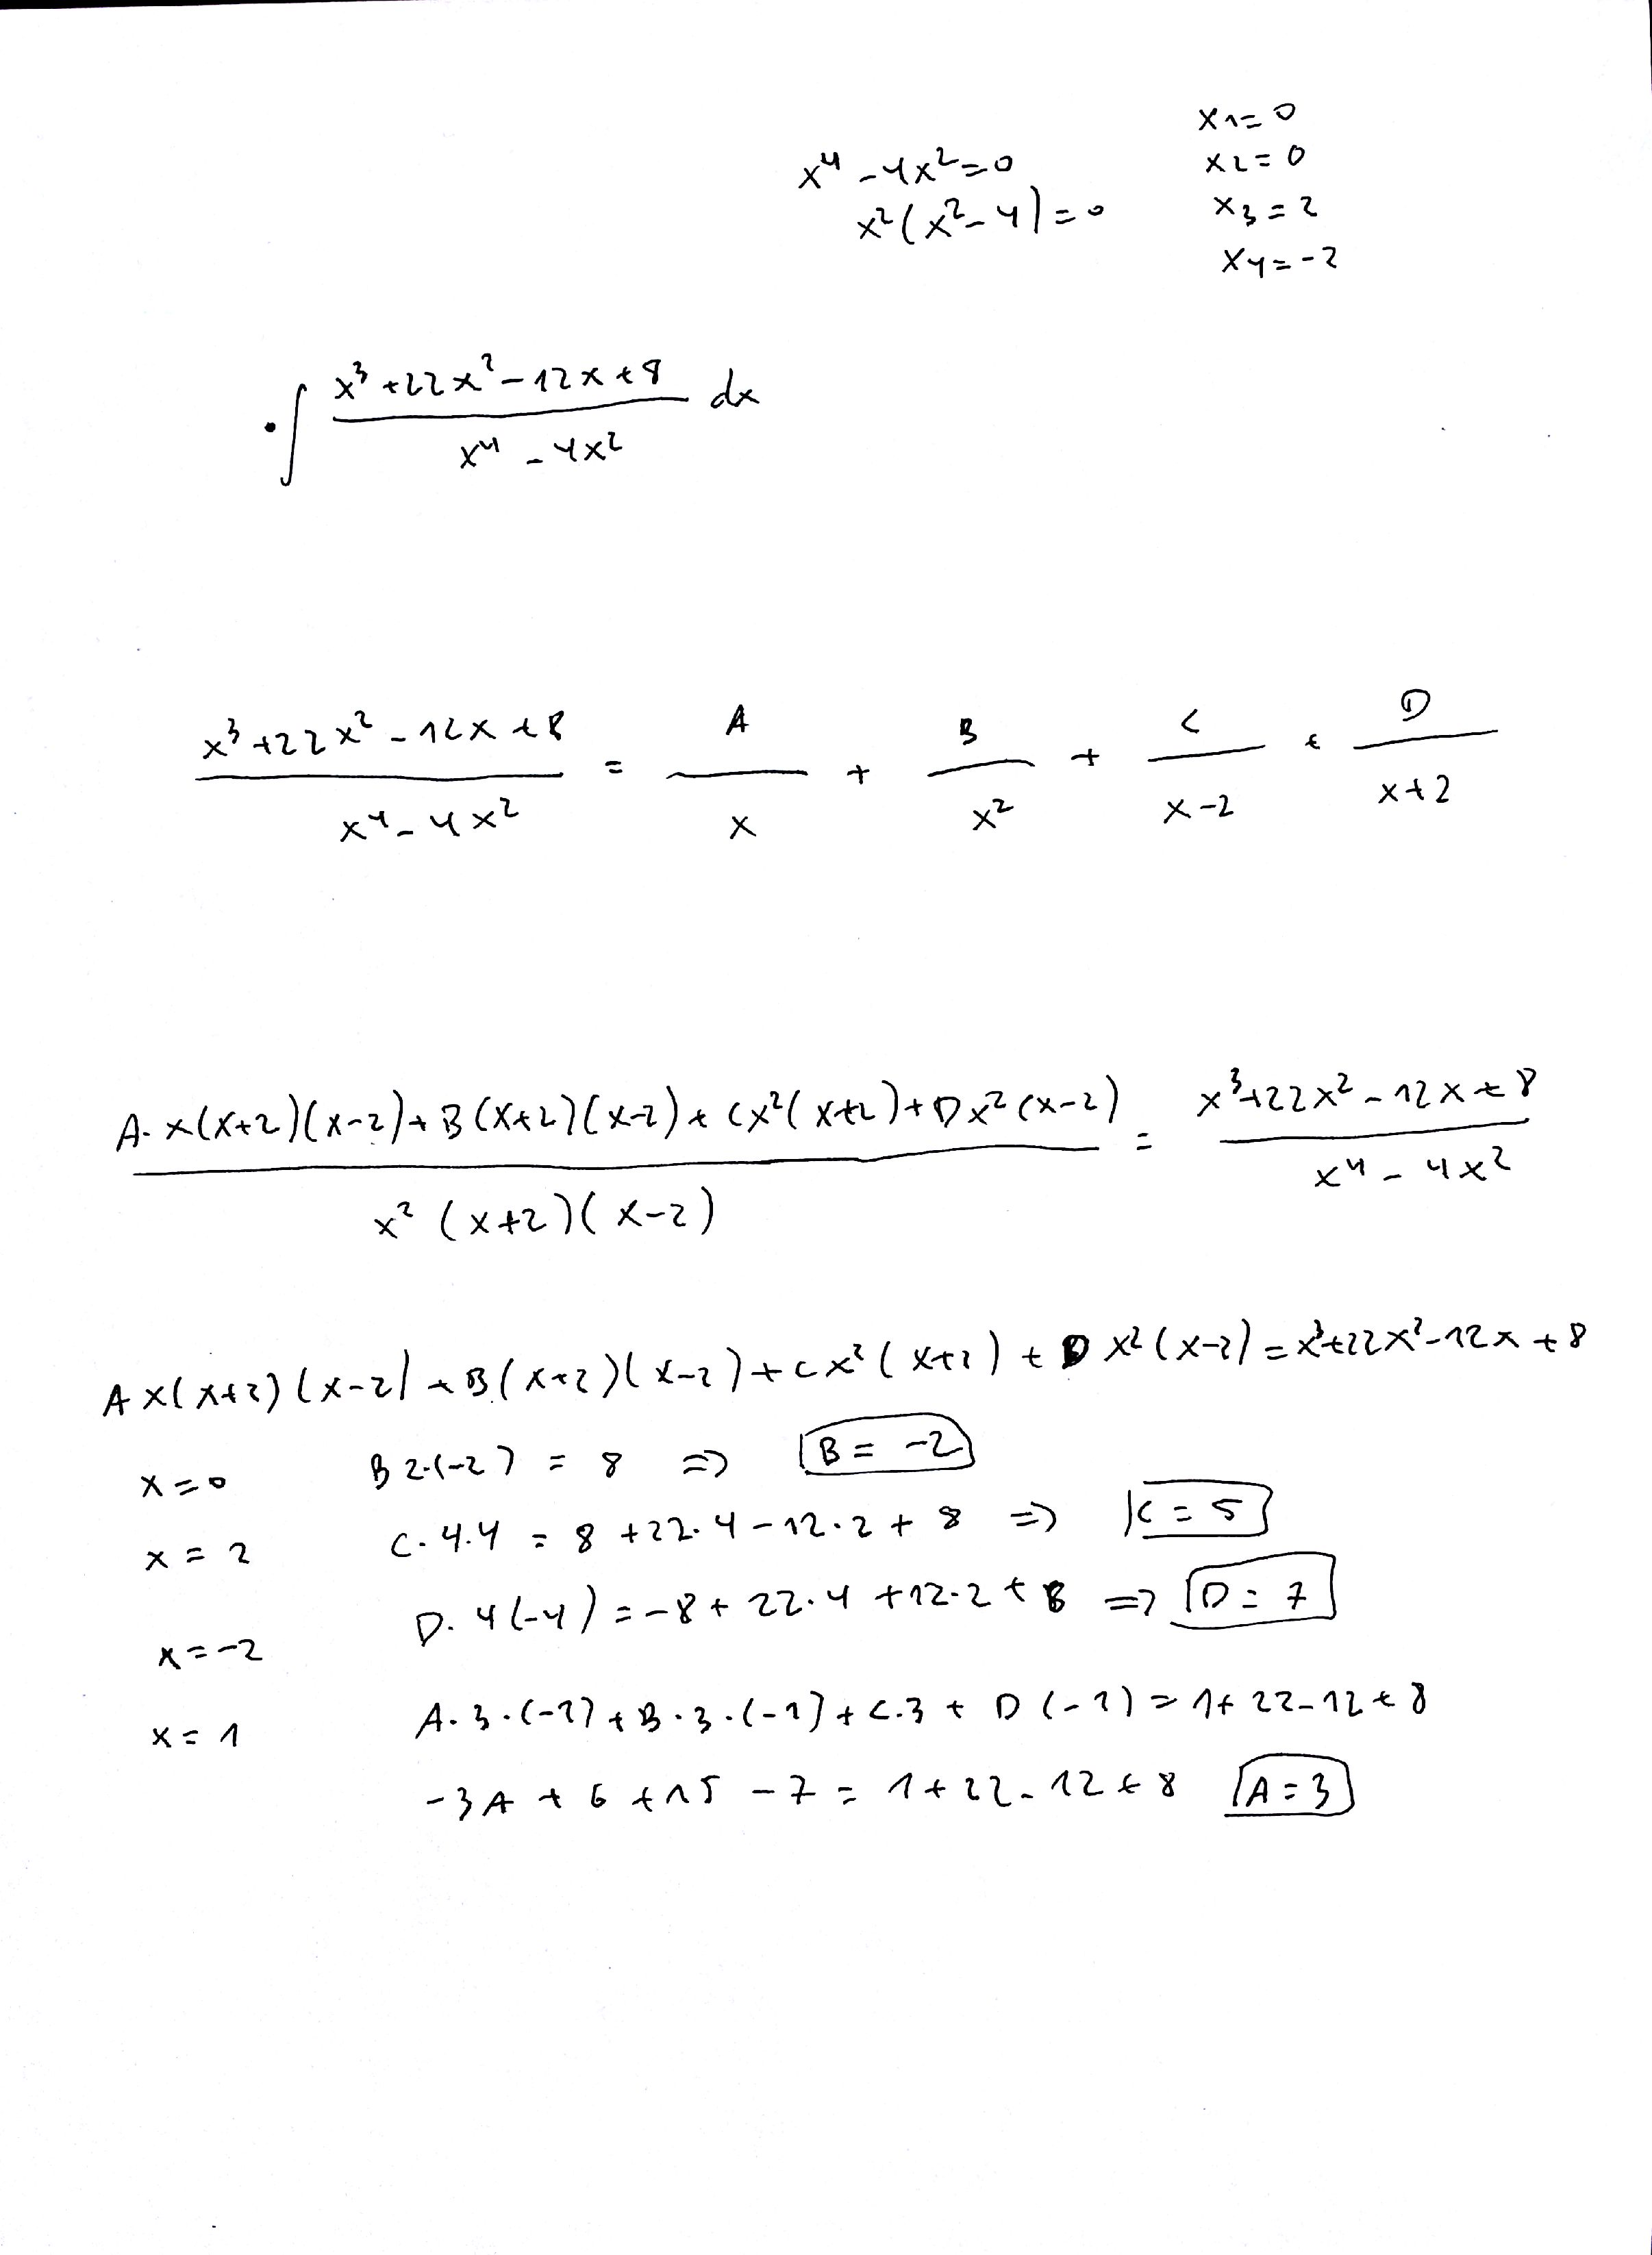 x⁴ - 4x² = 0
x²(x² - 4) = 0
x1 = 0
x2 = 0
x3 = 2
x4 = -2
• ∫ (x³ + 22x² - 12x + 8)/(x⁴ - 4x²) dx
(x³ + 22x² - 12x + 8)/(x⁴ - 4x²) = A/x + B/x² + C/(x-2) + D/(x+2)
(A·x(x+2)(x-2) + B(x+2)(x-2) + Cx²(x+2) + Dx²(x-2))/(x²(x+2)(x-2)) = (x³ + 22x² - 12x + 8)/(x⁴ - 4x²)
Ax(x+2)(x-2) + B(x+2)(x-2) + Cx²(x+2) + Dx²(x-2) = x³ + 22x² - 12x + 8
x = 0 B 2·(-2) = 8 => B = -2
x = 2 C·4·4 = 8 + 22·4 - 12·2 + 8 => C = 5
x = -2 D·4(-4) = -8 + 22·4 + 12·2 + 8 => D = 7
x = 1 A·3·(-1) + B·3·(-1) + C·3 + D(-1) = 1 + 22 - 12 + 8
-3A + 6 + 15 - 7 = 1 + 22 - 12 + 8 A = 3